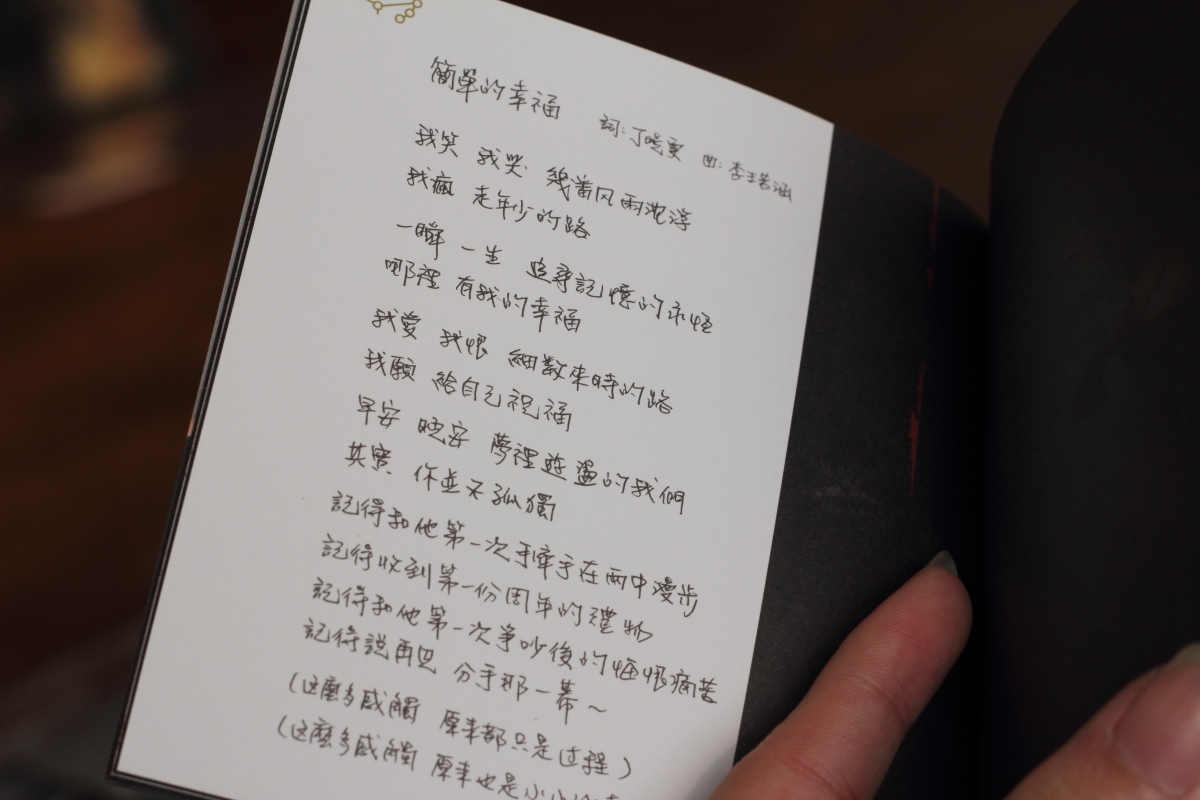 簡單的幸福 詞:丁曉雯 曲:李王若涵
我笑 我哭 幾番风雨沈浮
我瘋 走年少的路
一瞬 一生 追尋記憶的永恆
哪裡 有我的幸福
我愛 我恨 細數來時的路
我願 給自己祝福
早安 晚安 夢裡遊盪的我們
其實 你並不孤獨
記得和他第一次手牽手在雨中漫步
記得收到第一份周年的禮物
記得和他第一次爭吵後的悔恨痛苦
記得說再見 分手那一幕~
(这麼多感觸 原來都只是过程)
(这麼多感觸 原來也是小小